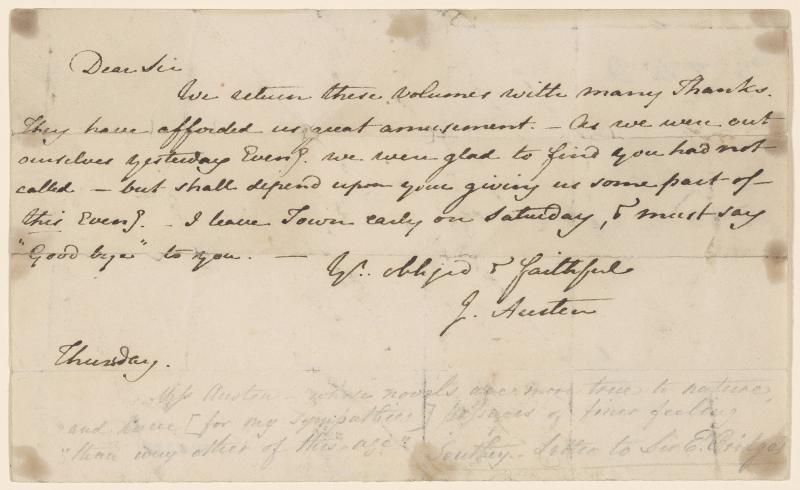 Dear Sir
We return these volumes with many Thanks.
They have afforded us great amusement. – As we were out
ourselves yesterday Eveng. we were glad to find you had not
called – but shall depend upon your giving us some part of
this Eveng. – I leave Town early on Saturday, & must say
"Good bye" to you. –
Yr. obliged & faithful
J. Austen
Thursday.
Miss Austen – whose novels are more true to nature,
and have [for my sympathies] passages of finer feeling
"than any other of this age" Southey. Letter to Sir E. Bridges